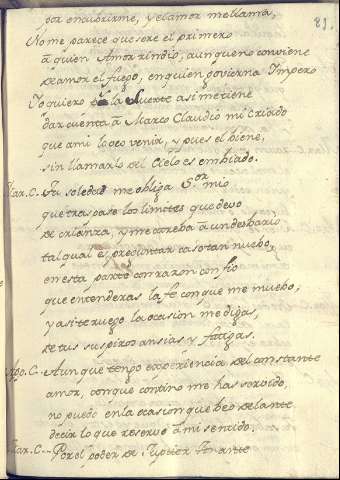 81.
por encubrirme, y el amor me llama,
No me parece que sere el primero
à quien Amor rindio, aunque no conviene
de amor el fuego, en quien govierna Impero
Yo quiero la suerte asi me tiene
dar cuenta à Marco Claudio mi criado
que ami lo veo venir, y pues el biene,
sin llamarlo del Cielo es embiado.
Mar. C.- Tu soledad me obliga S.or mio
que traspase los limites que devo
de crianza, y me atreba à un desbario
tal qual es preguntar caso tan nuebo,
en esta parte con razon confio
que entenderas la fe con que me muebo,
y asi te ruego la ocasion me digas,
de tus suspiros ansias y fatigas.
Apo. C.- Aunque tengo experiencia del constante
amor, con que contino me has servido,
no puedo en la ocasion que veo delante
decir lo que reservo à mi sentido.
Mar. C.-- Por el poder de Jupiter Tonante